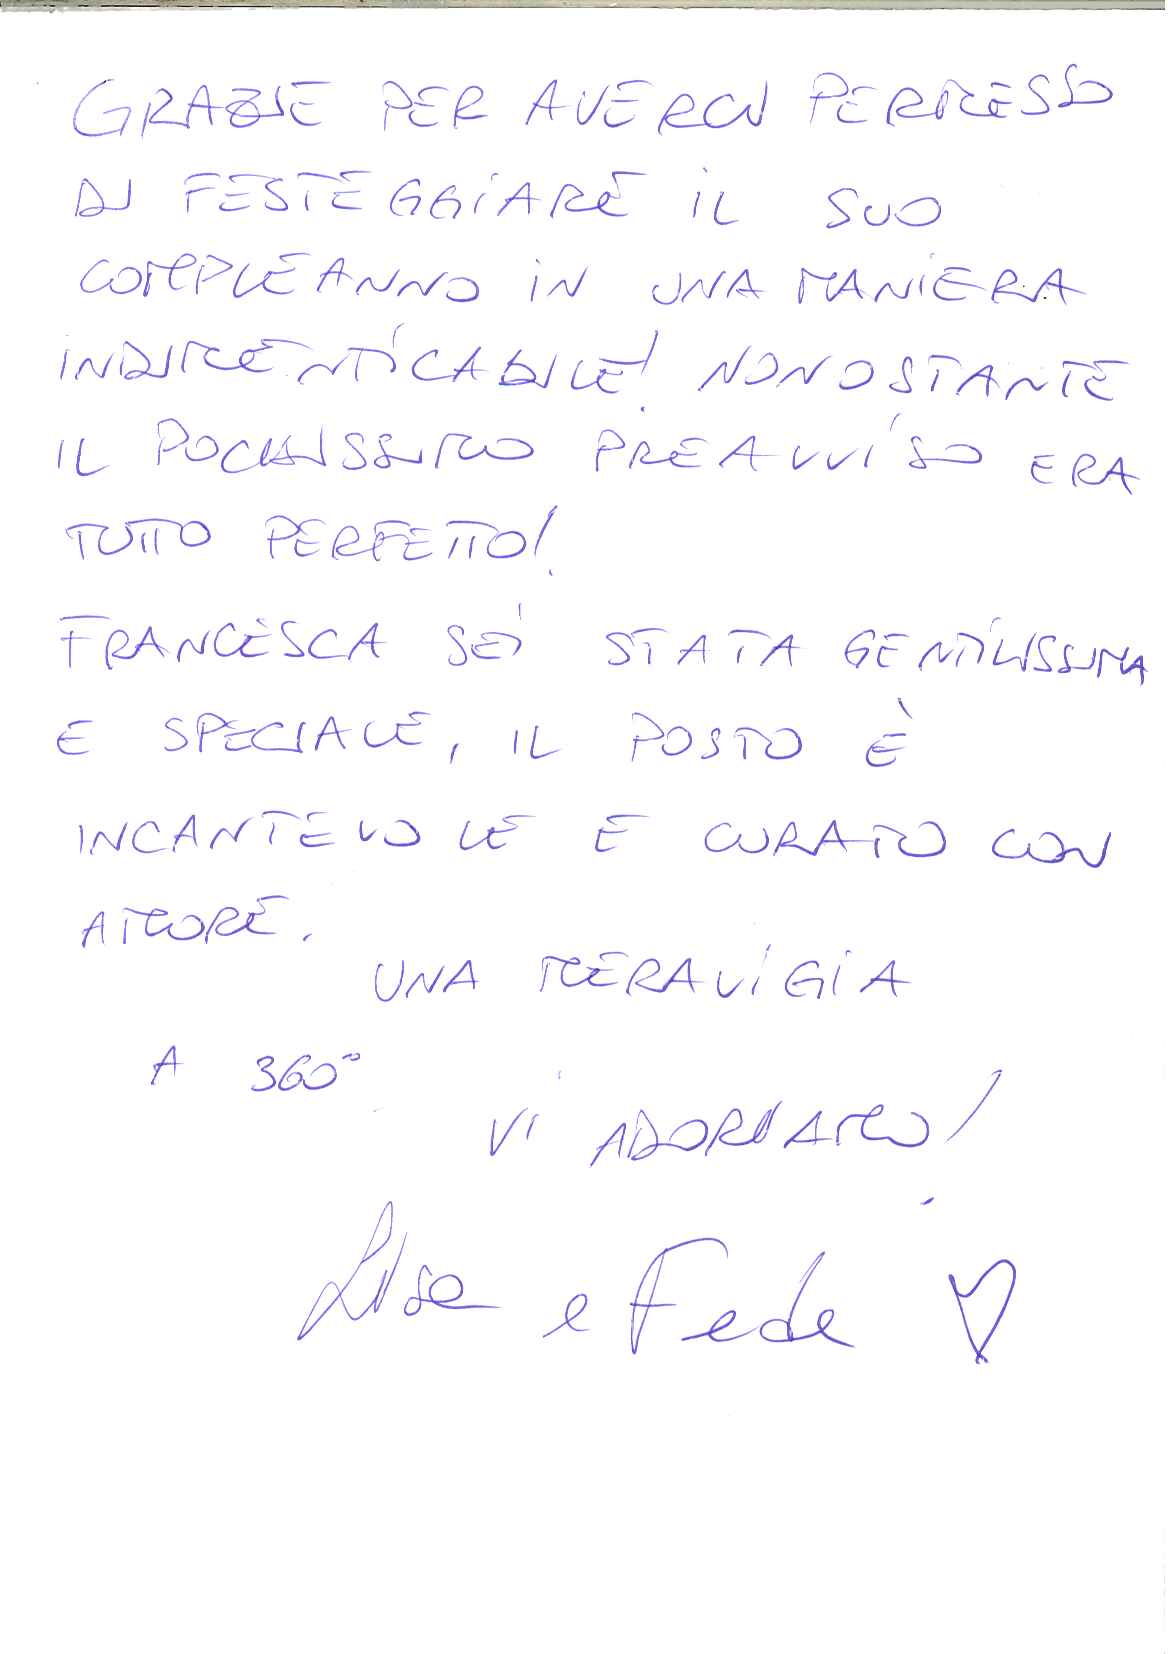 GRAZIE PER AVERCI PERMESSO
DI FESTEGGIARE IL SUO
COMPLEANNO IN UNA MANIERA
INDIMENTICABILE! NONOSTANTE
IL POCHISSIMO PREAVVISO ERA
TUTTO PERFETTO!
FRANCESCA SEI STATA GENTILISSIMA
E SPECIALE, IL POSTO È
INCANTEVOLE E CURATO CON
AMORE.
UNA MERAVIGIA
A 360°
VI ADORIAMO!
Lisa e Fede